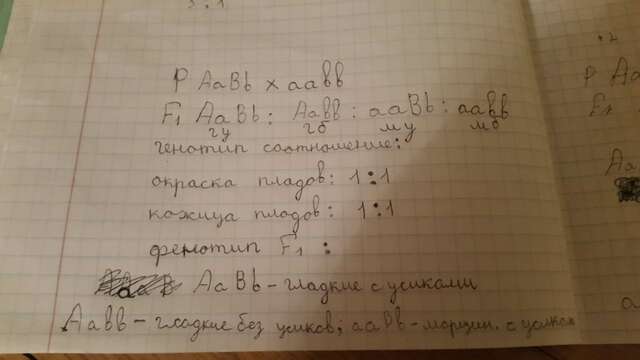 P AaBb x aaвв
F₁ AaBb : Aaвв : aaBb : aaвв
гу гб му мб
генотип соотношение:
окраска пладов: 1:1
кожица пладов: 1:1
фенотип F₁ :
AaBb - гладкие с усиками
Aaвв - гладкие без усиков; aaBb - морщин. с усиком
P
F₁